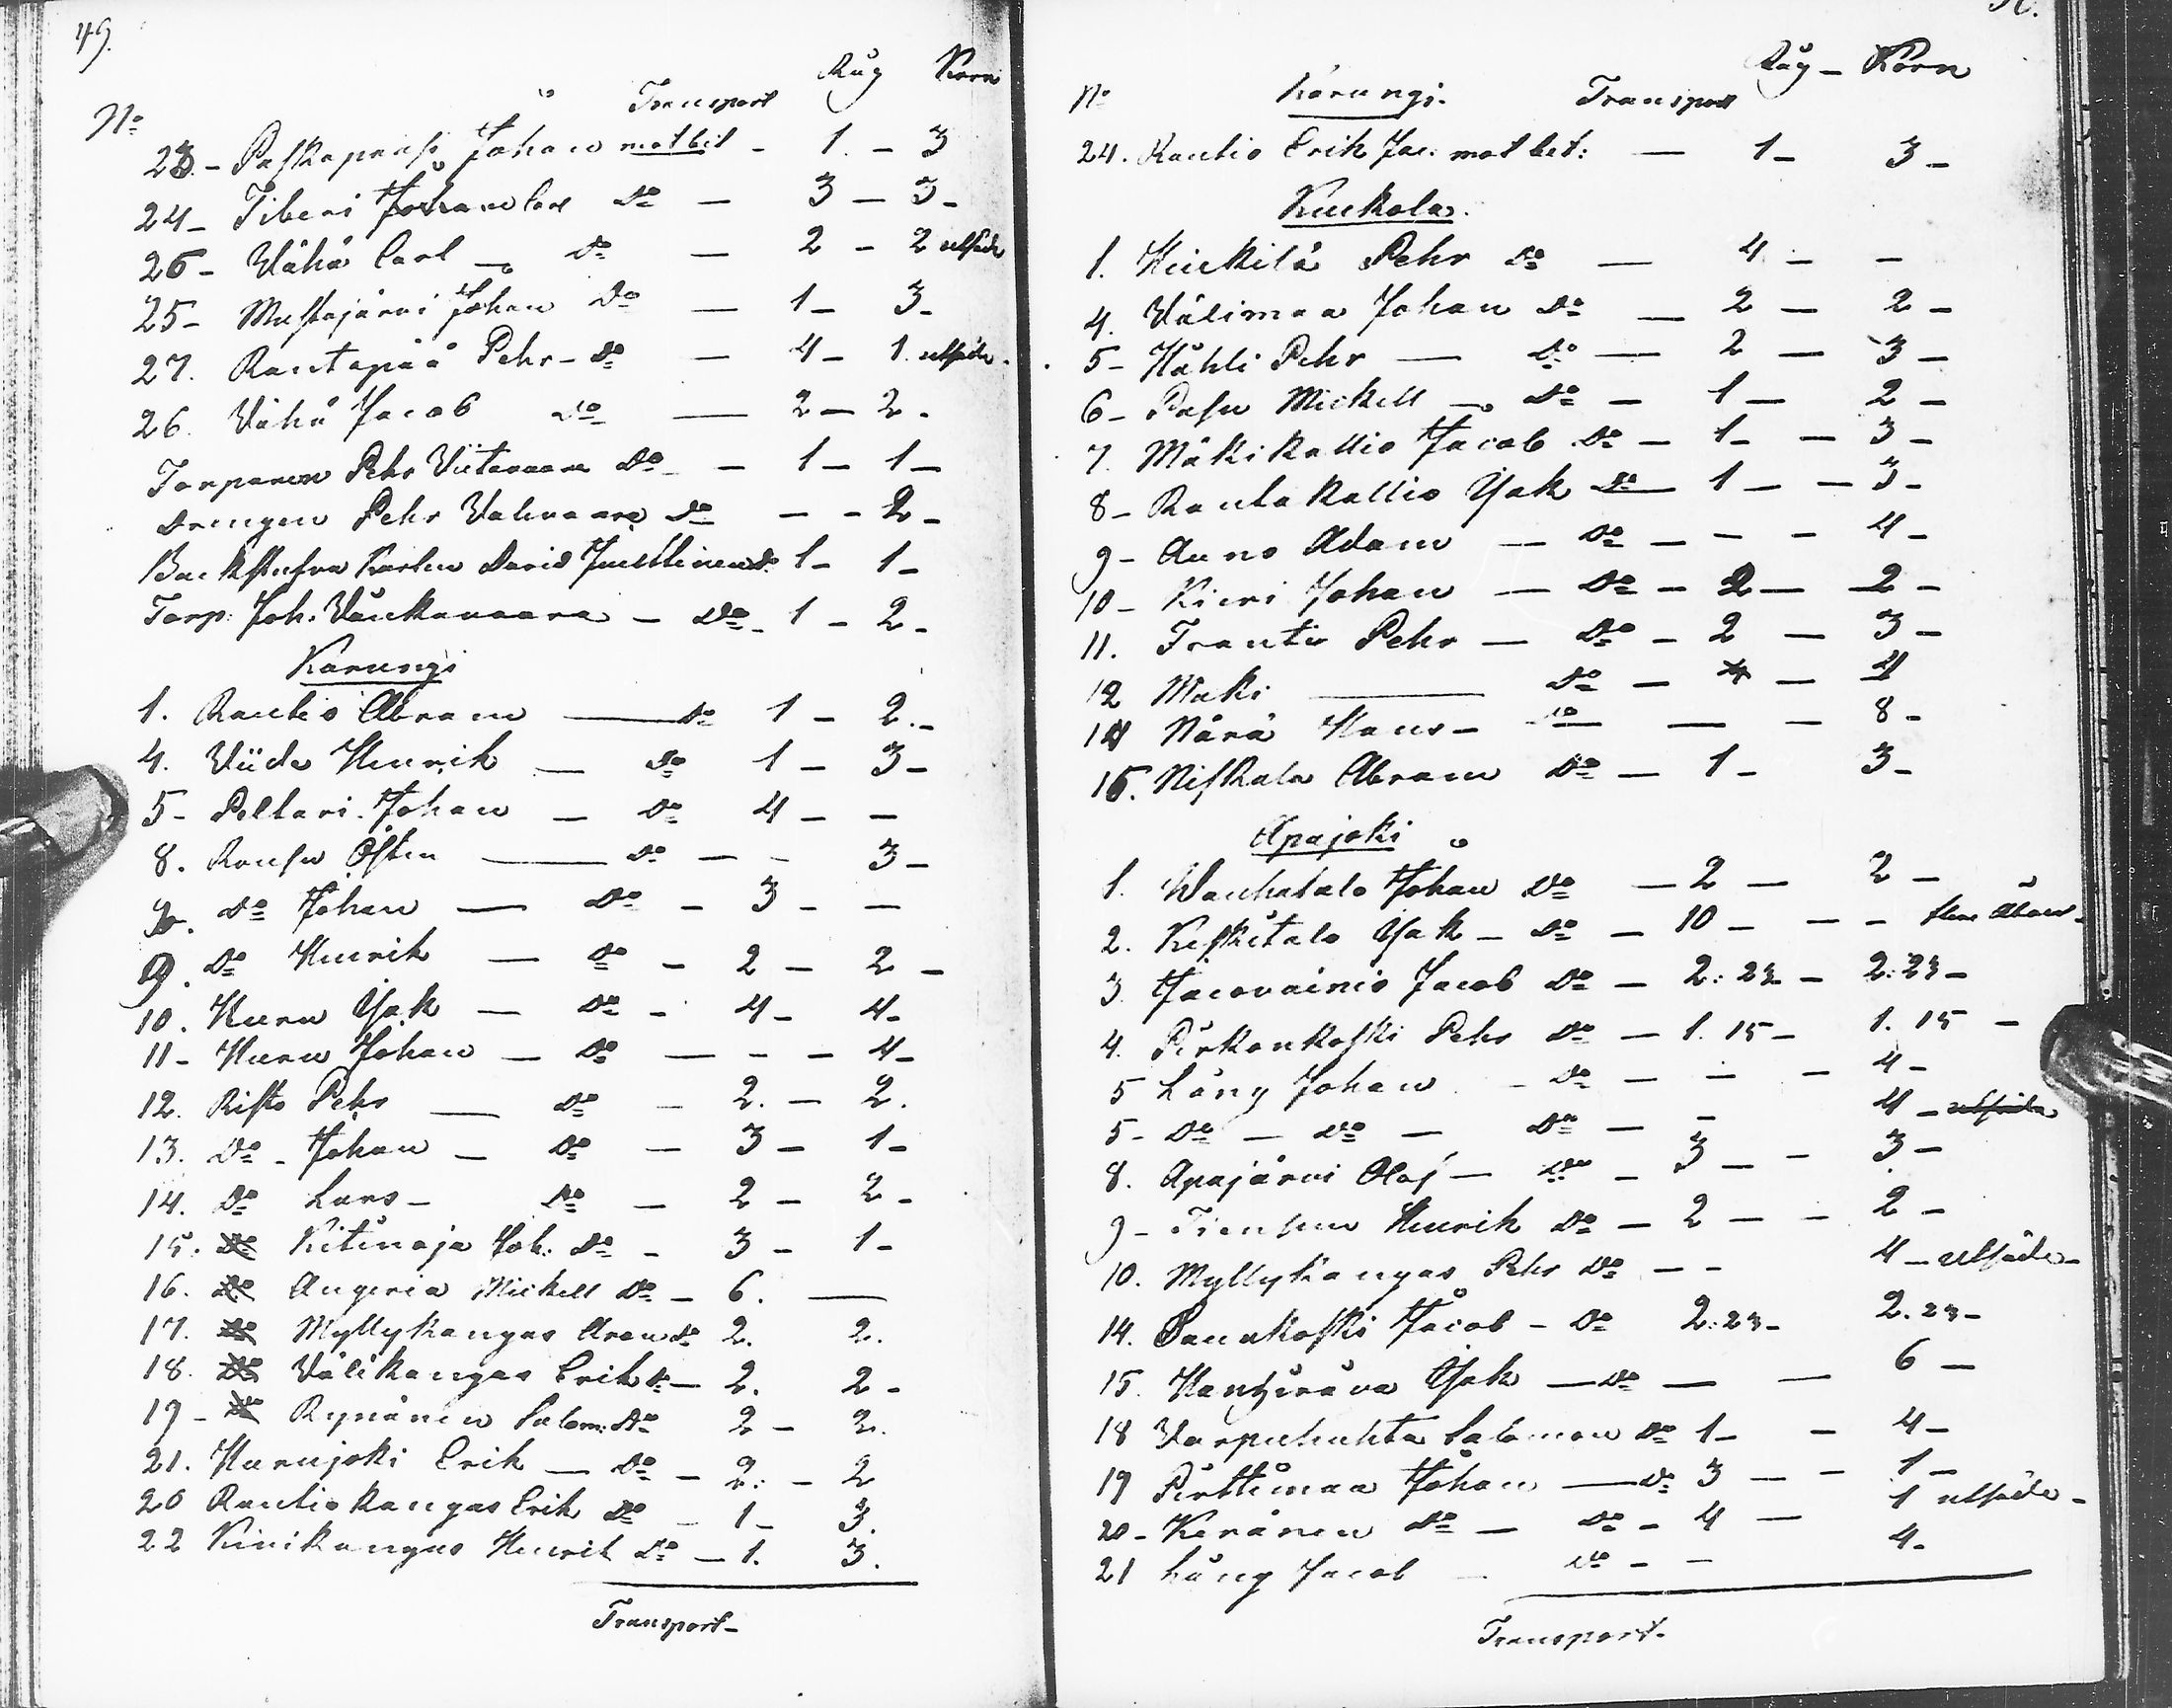 49.
Råg Korn
No Transport
23. - Paskapaasi Johan mot bet - 1. - 3
24 - Tiberi Johan Carl Do - 3 - 3 -
26 - Vähä Carl - Do - 2 - 2 utsäde
25 - Mustajärvi Johan Do - 1 - 3 -
27. Rautapää Pehr - Do - 4 - 1. utsäde.
26. Vähä Jacob Do - 2 - 2.
Torparen Pehr Viitavaara Do - 1 - 1 -
Drengen Pehr Valivaara Do - - 2 -
Backstufvu Karlen David Do 1 - 1 -
Torp: Joh. Vänkavaara - Do - 1 - 2 -
Karungi
1. Rautio Abram - Do 1 - 2. -
4. Viide Henrik - Do 1 - 3 -
5 - Peltari Johan - Do 4 - -
8. Rousu Östen - Do - - 3 -
Do Johan - Do - 3 - -
9. Do Henrik - Do - 2 - 2 -
10. Huru Isak - Do - 4 - 4 -
11 - Huru Johan - Do - - - 4 -
12. Risto Pehr - Do - 2. - 2.
13. Do - Johan - Do - 3 - 1 -
14. Do Lars - Do - 2 - 2 -
15. Do Kitinoja Joh: Do - 3 - 1 -
16. Do Angeria Mickell Do - 6. -
17. Do Myllykangas Aron Do 2. 2.
18. Do Välikangas Erik Do - 2. 2 -
19 - Do Rynänen Salom: Do 2 - 2.
21. Hurujoki Erik - Do - 2: - 2
20 Rautiokangas Erik Do - 1 - 3.
22 Kivikangas Henrik Do - 1. 3.
Transport -
Råg - Korn
No Karungi. Transport
24. Rautio Erik Jac: mot bet: - 1 - 3 -
Kuckola.
1. Kuckilä Pehr Do - 4 - -
4. Välimaa Johan Do - 2 - 2 -
5 - Hähli Pehr - Do - 2 - 3 -
6 - Pasu Mickell - Do - 1 - 2 -
7. Mäkikallio Jacob Do - 1 - - 3 -
8 - Rautakallio Isak Do - 1 - - 3 -
9 - Auno Adam - Do - - - 4 -
10 - Kieri Johan - Do - 2 - 2 -
11. Frantti Pehr - Do - 2 - 3 -
12 Mäki - Do - 4 - 4
14 Närä Hans - Do - - - 8 -
15. Niskala Abram Do - 1 - 3 -
Apajoki
1. Wanhatalo Johan Do - 2 - 2 -
2. Keskitalo Isak - Do - 10 - - -
3. Jacovainio Jacob Do - 2: 23 - 2: 23 -
4. Pirkonkoski Pehr Do - 1. 15 - 1. 15 -
5 Lång Johan - Do - - - 4 -
5 - Do - Do - Do - - 4 - utsäde
8. Apajärvi Olof - Do - 3 - - 3 -
9 - Tiensuu Henrik Do - 2 - - 2 -
10. Myllykangas Pehr Do - - 4 - utsäde -
14. Saukoski Jacob - Do 2: 23 - 2. 23 -
15. Isak - Do - - 6 -
18 Varpuhuhta Salomon Do 1 - - 4 -
19 Pirttimaa Johan - Do 3 - - 1 -
20 - Keränen Do - Do - 4 - 1 utsäde -
21 Lång Jacob - Do - - 4 -
Transport -